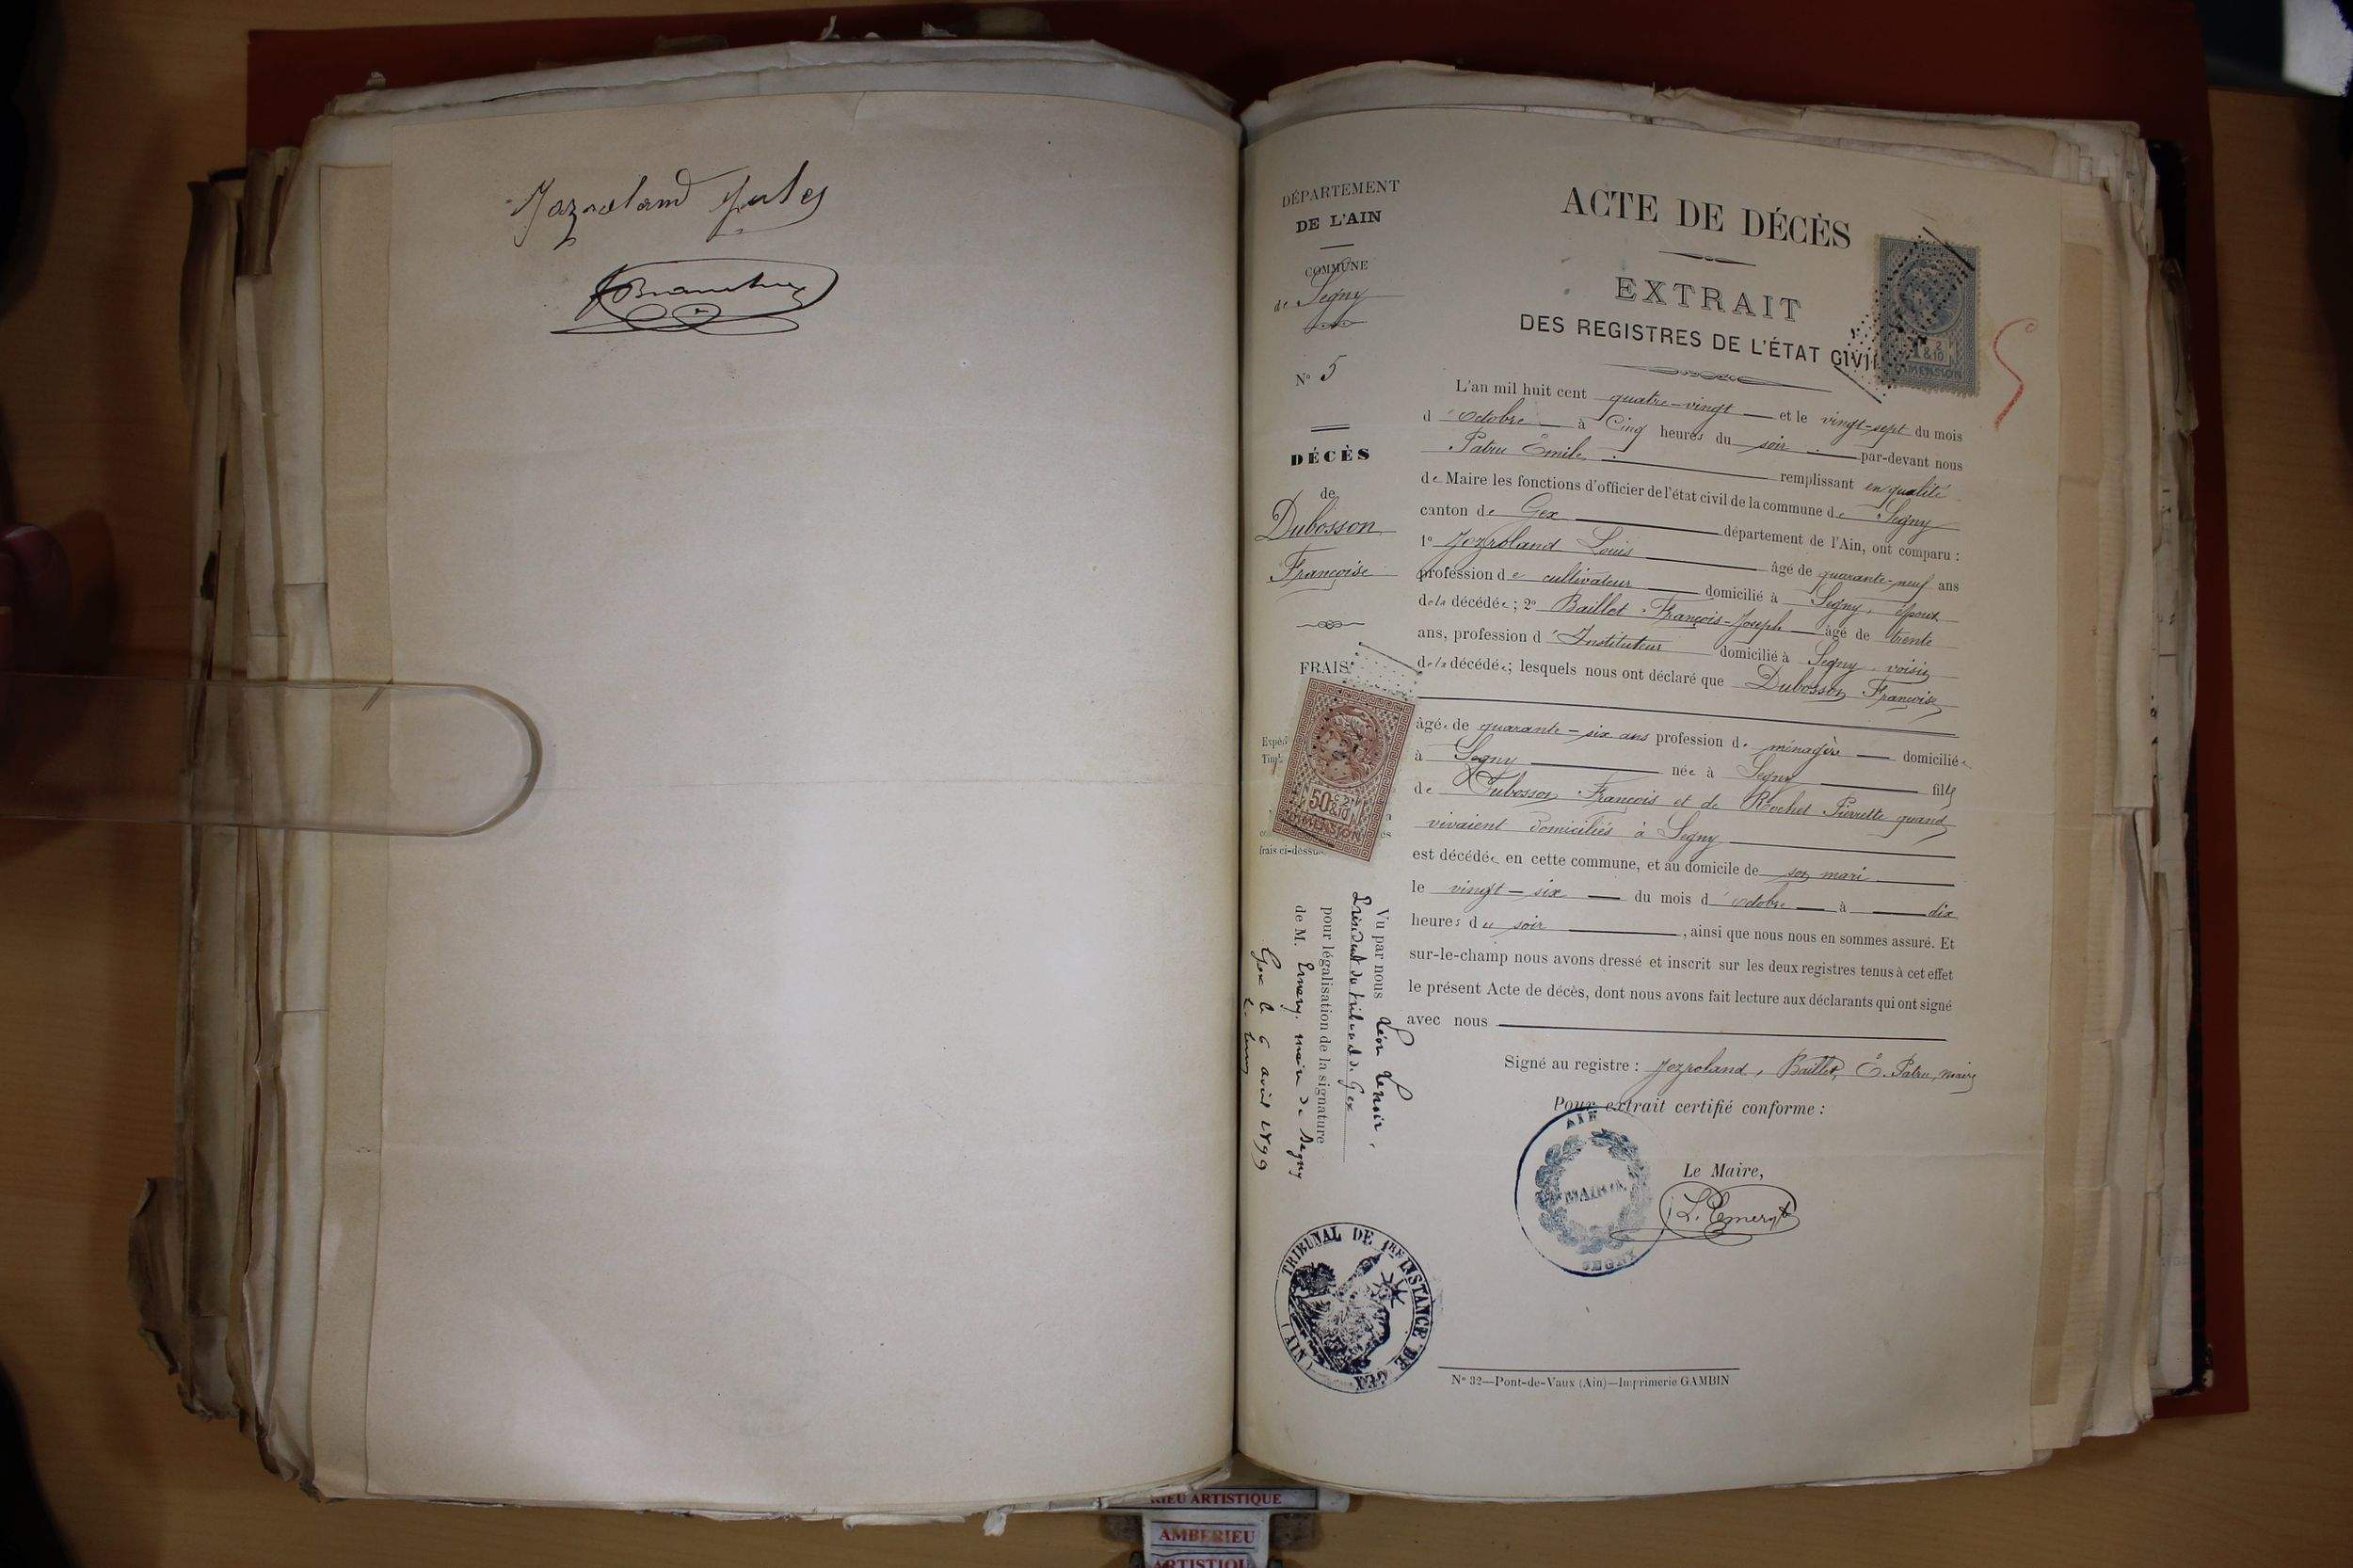 Jozroland Jules
DÉPARTEMENT
DE L'AIN
COMMUNE
de Segny
N° 5
DÉCÈS
de
Dubosson
Françoise
FRAIS
Expéd
Timb
frais ci-dessus
50c 2/10
DIMENSION
Vu par nous Léon Lenoir,
Président du tribunal de Gex
pour légalisation de la signature
de M. Emery, maire de Segny
Gex le 6 avril 1899
TRIBUNAL DE 1RE INSTANCE DE GEX (AIN)
ACTE DE DÉCÈS
EXTRAIT
DES REGISTRES DE L'ÉTAT CIVIL
2/10
DIMENSION
L'an mil huit cent quatre-vingt et le vingt-sept du mois
d'octobre à Cinq heures du soir par-devant nous
Patru Émile remplissant en qualité
de Maire les fonctions d'officier de l'état civil de la commune de Segny
canton de Gex département de l'Ain, ont comparu :
1° Jozroland Louis âgé de quarante-neuf ans
profession de cultivateur domicilié à Segny, époux
de la décédée ; 2° Baillet François-Joseph âgé de trente
ans, profession d'Instituteur domicilié à Segny voisin
de la décédée ; lesquels nous ont déclaré que Dubosson Françoise
âgée de quarante-six ans profession de ménagère domiciliée
à Segny née à Segny fille
de Dubosson François et de Rochet Pierrette quand
vivaient domiciliés à Segny
est décédée en cette commune, et au domicile de son mari
le vingt-six du mois d'octobre à dix
heures du soir, ainsi que nous nous en sommes assuré. Et
sur-le-champ nous avons dressé et inscrit sur les deux registres tenus à cet effet
le présent Acte de décès, dont nous avons fait lecture aux déclarants qui ont signé
avec nous
Signé au registre : Jozroland, Baillet, É. Patru, maire
Pour extrait certifié conforme :
Le Maire,
L. Emery
AIN
MAIRIE
SEGNY
N° 32—Pont-de-Vaux (Ain)—Imprimerie GAMBIN
RIEU ARTISTIQUE
AMBERIEU
ARTISTIQU